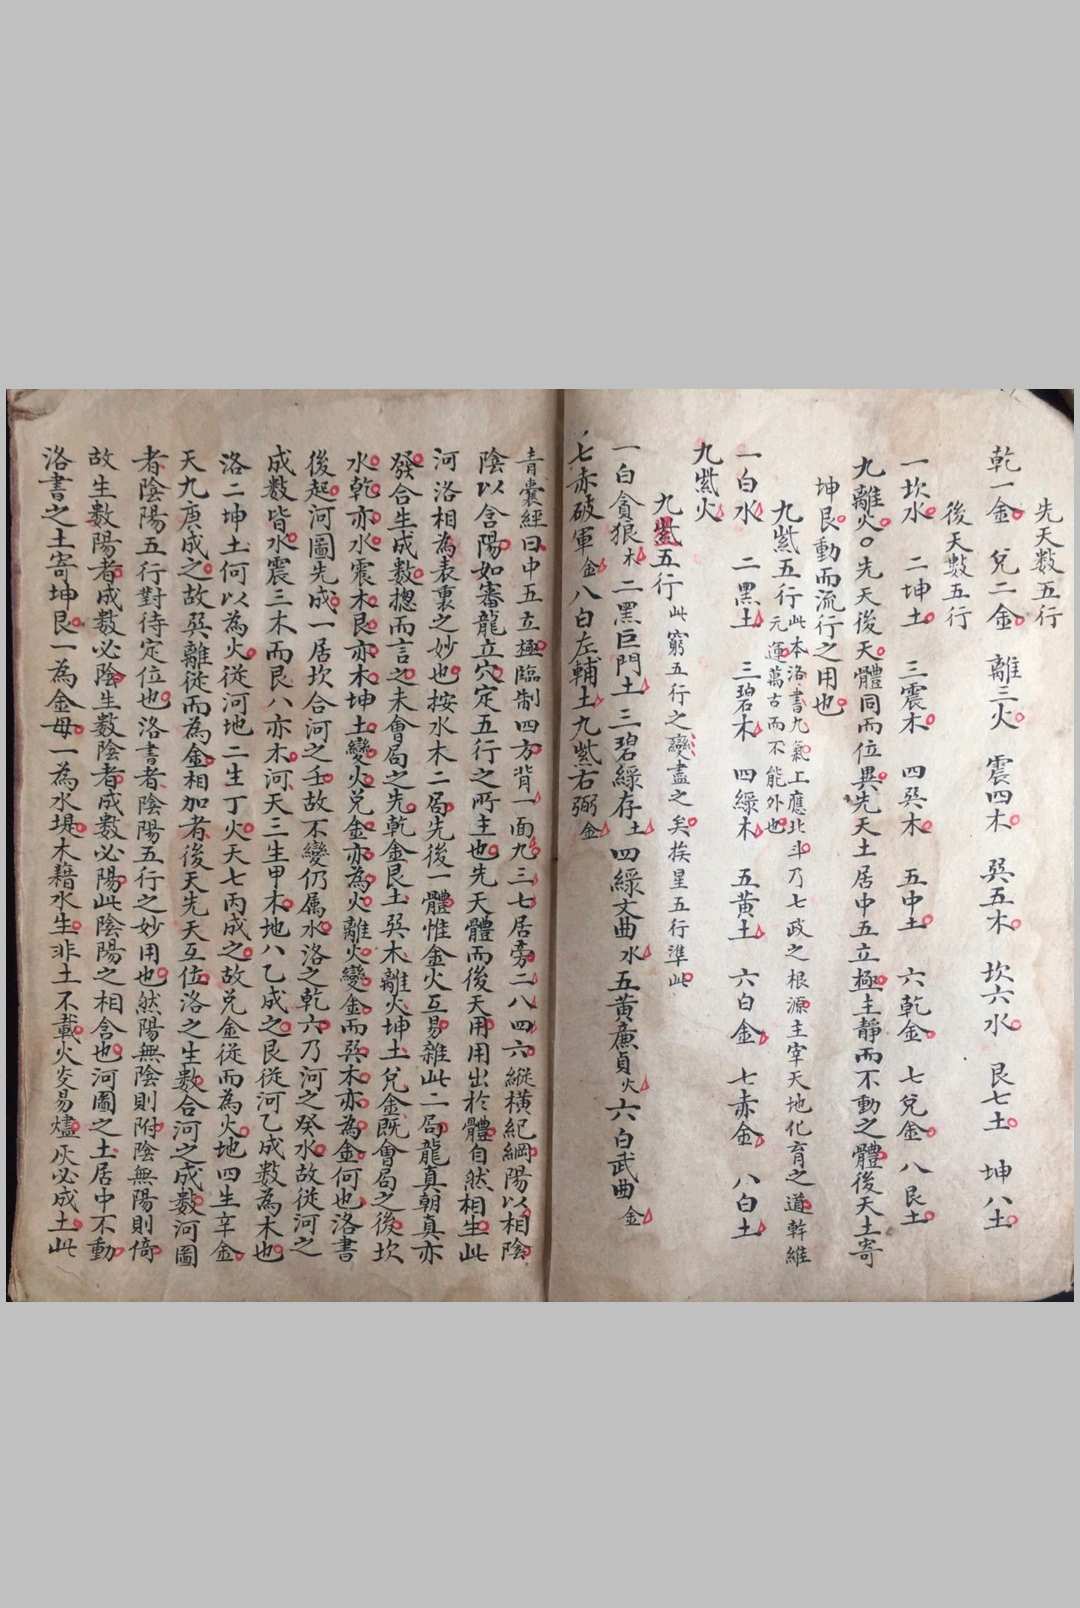 先天数五行
乾一金 兌二金 離三火 震四木 巽五木 坎六水 艮七土 坤八土
後天數五行
一坎水 二坤土 三震木 四巽木 五中土 六乾金 七兌金 八艮土
九離火〇先天後天體同而位異先天土居中五立極主靜而不動之體後天土寄
坤艮動而流行之用也
九紫五行此本洛書九氣上應北斗乃七政之根源主宰天地化育之道幹維
元運萬古而不能外也
一白水 二黑土 三碧木 四綠木 五黃土 六白金 七赤金 八白土
九紫火
九紫五行此窮五行之變盡之矣挨星五行準此
一白貪狼木二黑巨門土三碧綠存土四綠文曲水五黃廉貞火六白武曲金
七赤破軍金八白左輔土九紫右弼金
青囊經曰中五立極臨制四方背一面九三七居旁二八四六縱橫紀綱陽以相陰
陰以含陽如審龍立穴定五行之所主也先天體而後天用用出於體自然相生此
河洛相為表裏之妙也按水木二局先後一體惟金火互易雜此二局龍真朝真亦
發合生成數摠而言之未會局之先乾金艮土巽木離火坤土兌金既會局之後坎
水乾亦水震木艮亦木坤土變火兌金亦為火離火變金而巽木亦為金何也洛書
後起河圖先成一居坎合河之壬故不變仍屬水洛之乾六乃河之癸水故從河之
成數皆水震三木而艮八亦木河天三生甲木地八乙成之艮從河乙成數為木也
洛二坤土何以為火從河地二生丁火天七丙成之故兌金從而為火地四生辛金
天九庚成之故巽離從而為金相加者後天先天互位洛之生數合河之成數河圖
者陰陽五行對待定位也洛書者陰陽五行之妙用也然陽無陰則附陰無陽則倚
故生數陽者成數必陰生數陰者成數必陽此陰陽之相含也河圖之土居中不動
洛書之土寄坤艮一為金母一為水堤木藉水生非土不載火炎易燼灰必成土此